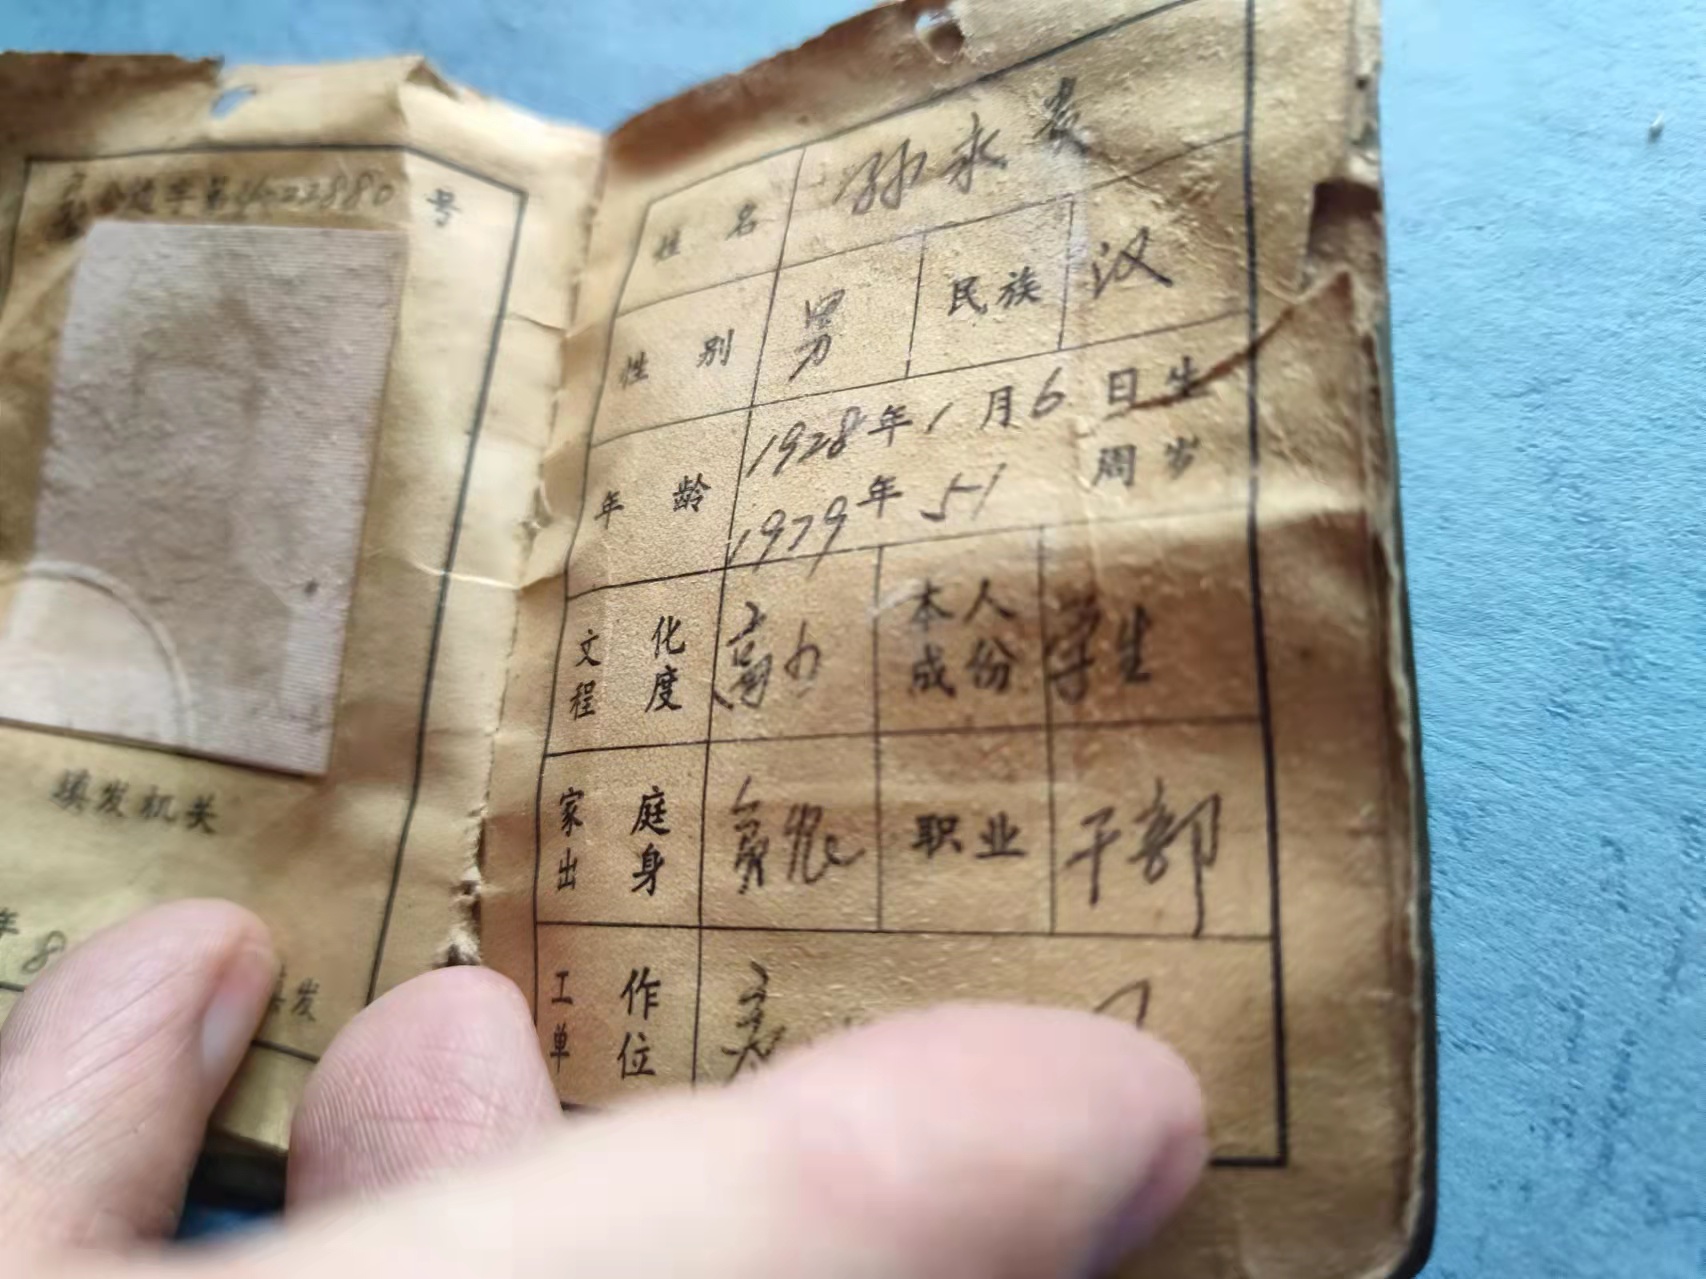 字第4022880号
填发机关
年 8
填发
姓名 孙永贵
性别 男 民族 汉
年龄 1928年1月6日生
1979年51周岁
文化程度 高中 本人成份 学生
家庭出身 贫农 职业 干部
工作单位